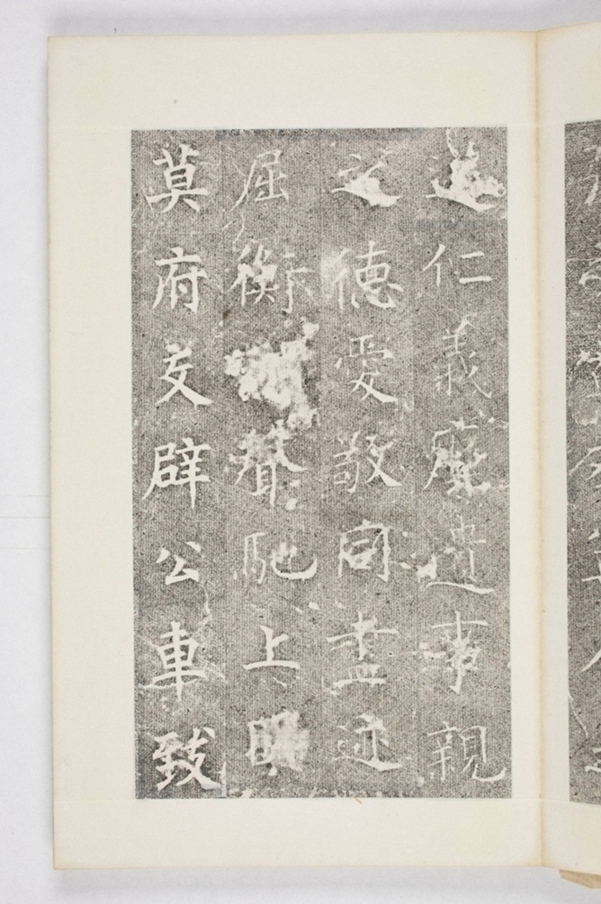 仁義靡違事親
之德愛敬同盡迹
屈衡聲馳上
莫府交辟公車致